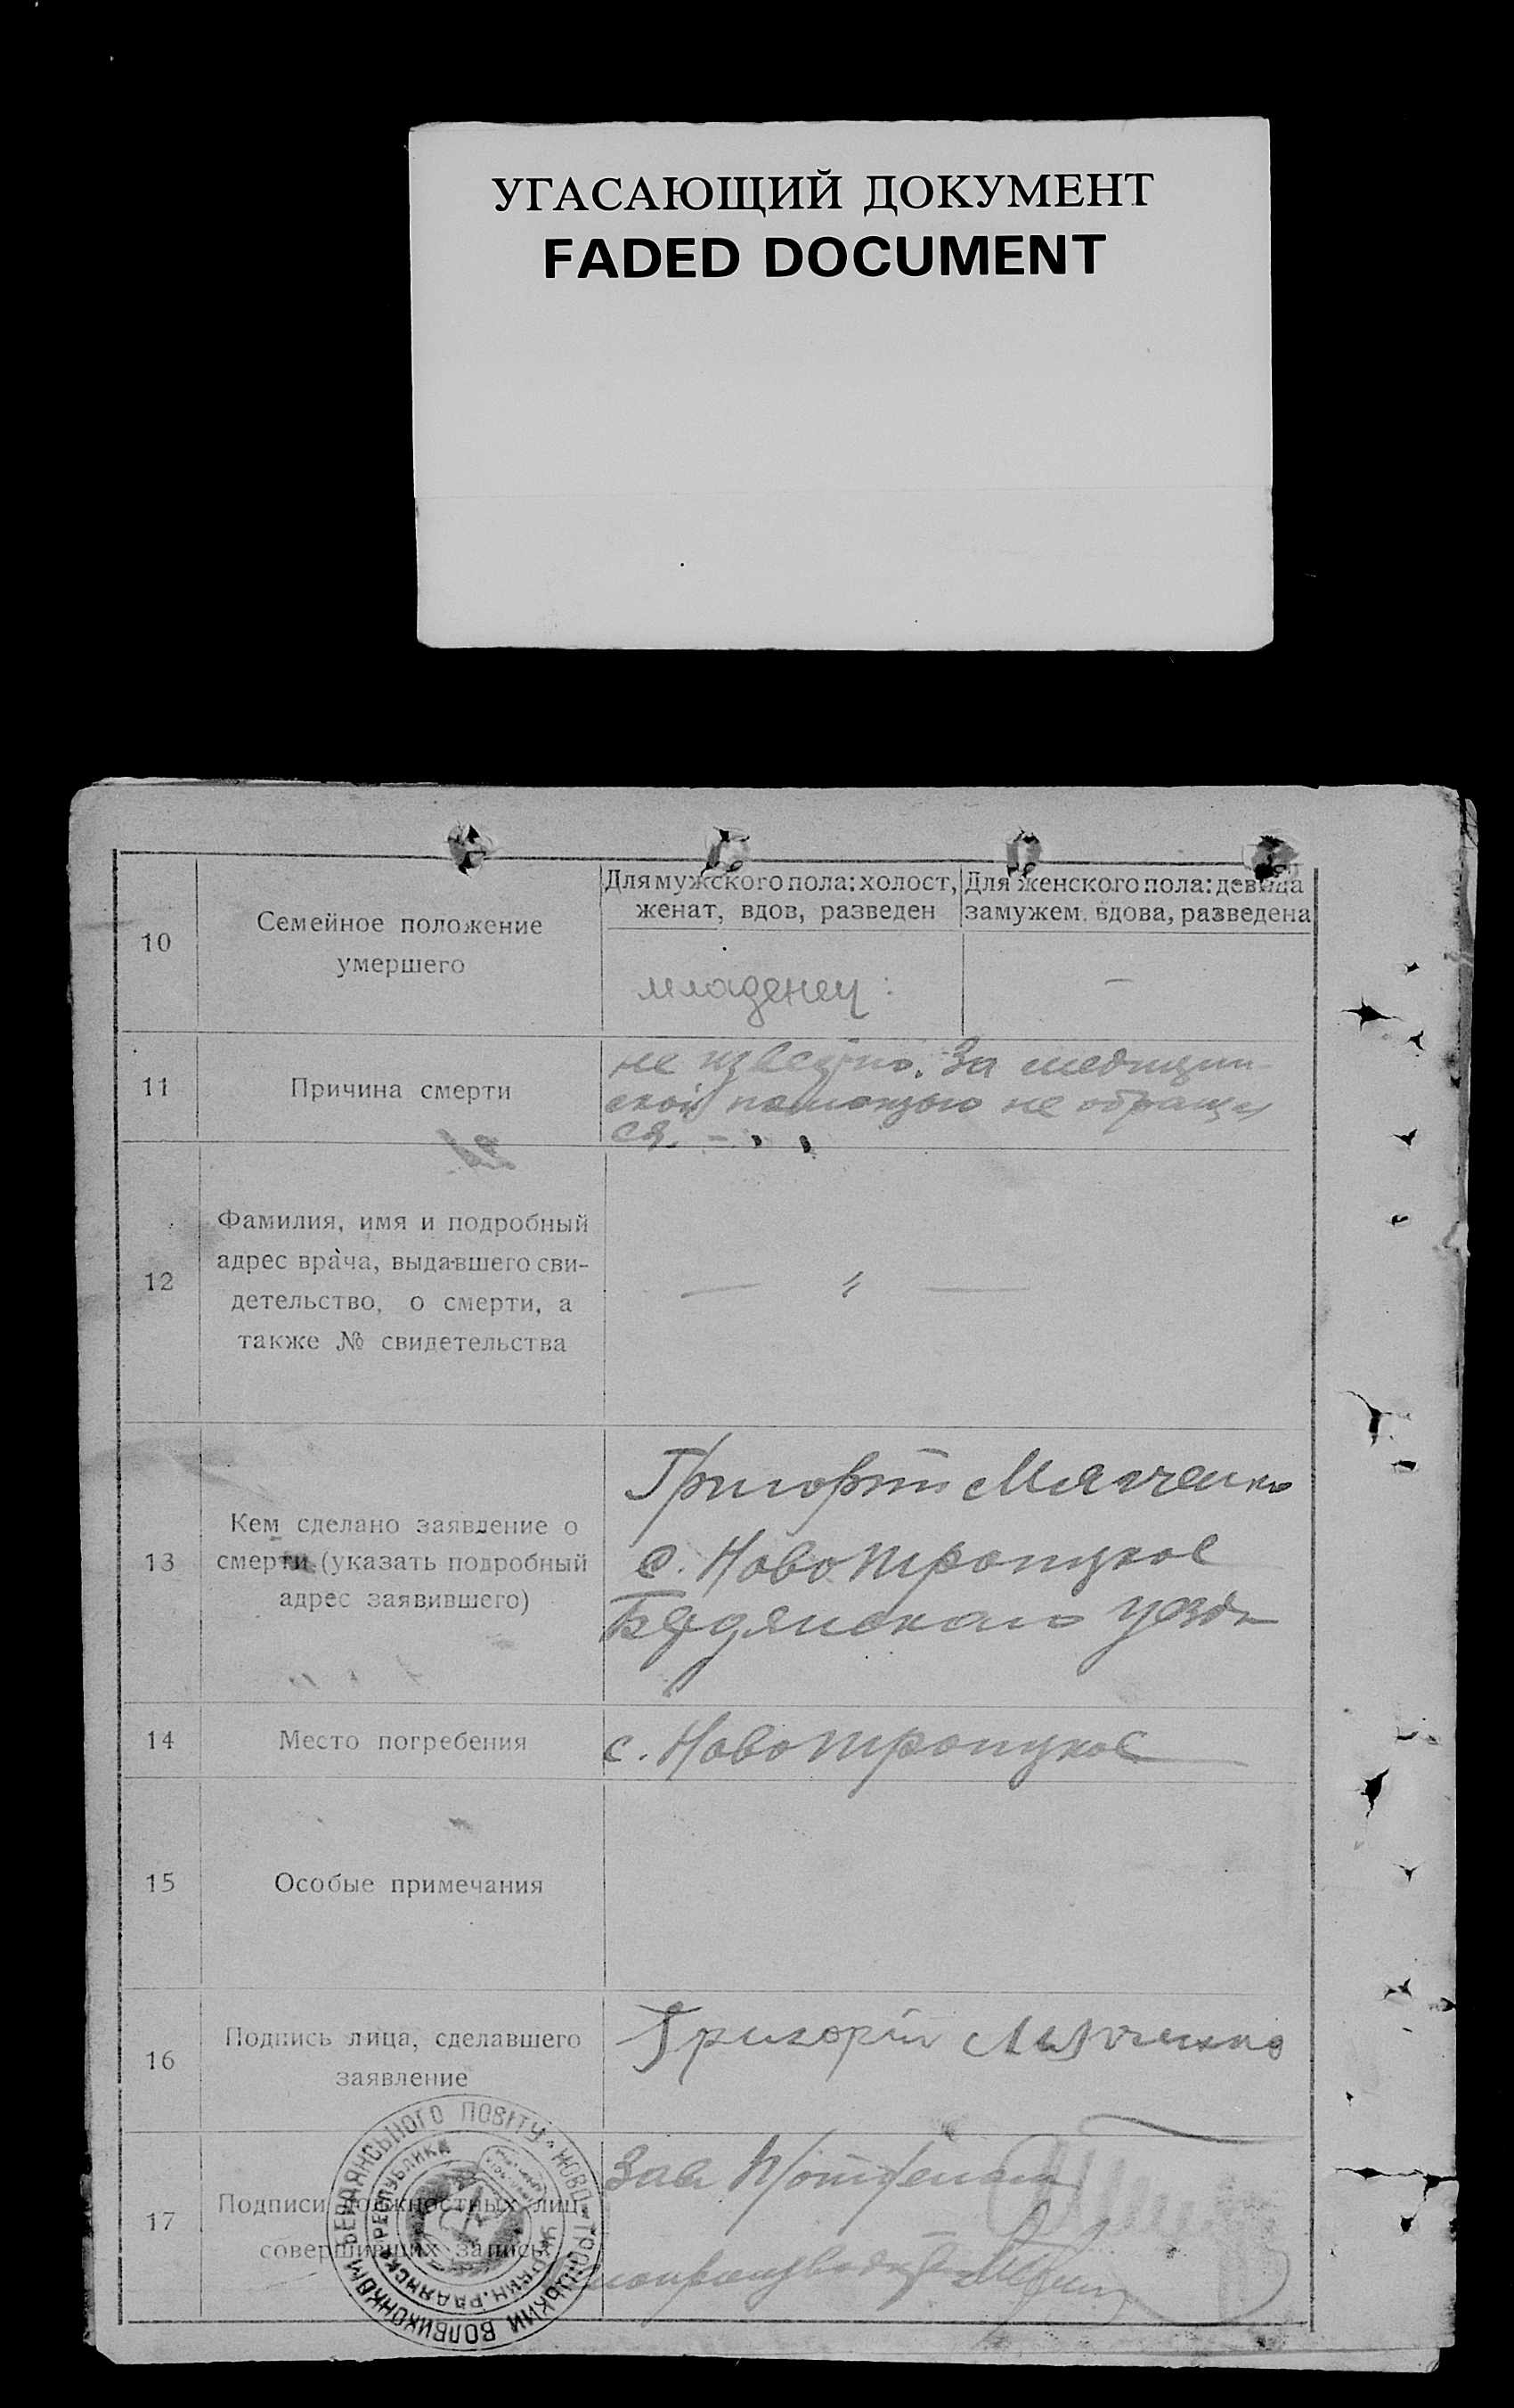 УГАСАЮЩИЙ ДОКУМЕНТ
FADED DOCUMENT
10
Семейное положение
умершего
Для мужского пола: холост,
женат, вдов, разведен
Для женского пола: девица
замужем, вдова, разведена
младенец:
—
11
Причина смерти
не известно. За медицин-
ской помощью не обращал
ся. —
12
Фамилия, имя и подробный
адрес врача, выдавшего сви-
детельство, о смерти, а
также № свидетельства
— " —
13
Кем сделано заявление о
смерти (указать подробный
адрес заявившего)
Григорий
с. Новотроицкое
Бердянского уезда
14
Место погребения
с. Новотроицкое
15
Особые примечания
16
Подпись лица, сделавшего
заявление
Григорій
17
Подписи должностных лиц,
совершивших запись
Зав.
НОВО-ТРОЇЦЬКИЙ ВОЛВИКОНКОМ БЕРДЯНСЬКОГО ПОВІТУ
УКРАЇН. РАДЯНСЬКА РЕСПУБЛИКА